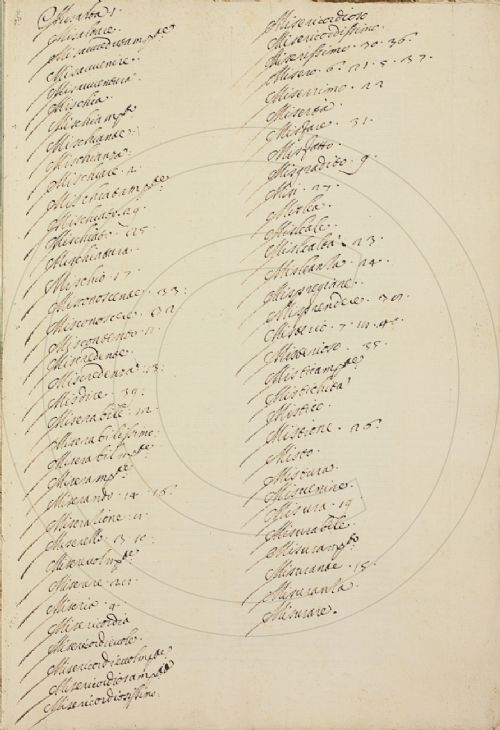 Misalta. 1.
Misaltare.
Misavvedutam.te
Misavvenire.
Misavventura.
Mischia.
Mischiam.to
Mischiante.
Mischianza.
Mischiare. 2.
Mischiatam.te
Mischiato. 29.
Mischiat
Mischiatura.
Mischio. 17.
Misconoscenza. 33.
Misconoscere.
Miscontento. 11.
Miscredente.
Miscredenza. 13.
Misdire. 39.
Miserabile. 12.
Miserabilissimo.
Miserabilm.te
Miseram.te
Miserando. 14. 16.
Miserazione.
Miserello.
Miserevolm.te
Miserere.
Miseria. 9.
Misericordia
Misericordievole.
Misericordievolm.te
Misericordiosam.te
Misericordiosissimo.
Misericordioso
Misericordissimo.
Miserissimo. 20. 36.
Misero. 6. 21. 5. 37.
Miserrimo. 22
Misertà.
Misfare. 31.
Misfatto.
Misgradito. 9.
Misi. 27.
Mislea.
Misleale.
Mislealtà. 23.
Misleanza. 24.
Mispregiare.
Misprendere. 30.
Misterio. 7.
Misterioso. 35.
Misticam.te
Mistichità
Mistico.
Mistione. 26.
Misto.
Mistura.
Misvenire.
Misura. 19
Misurabile.
Misuram.to
Misurante. 15.
Misuranza.
Misurare.